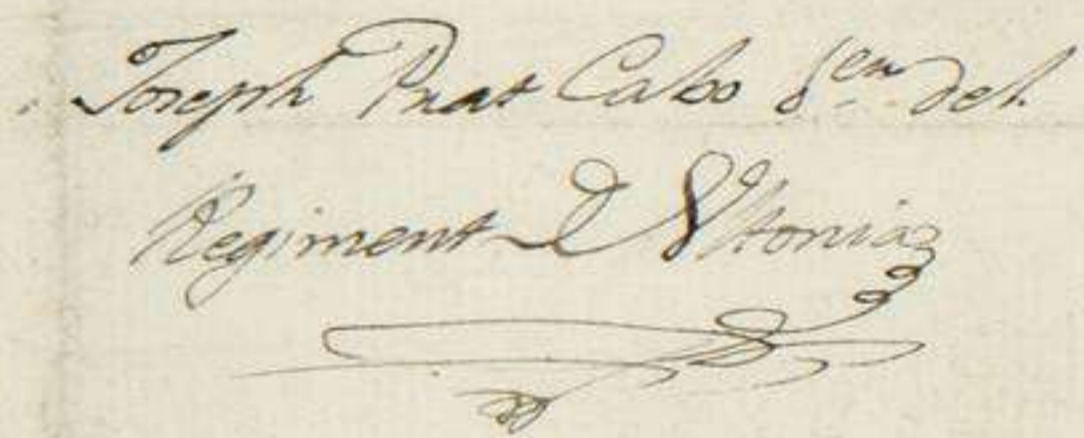 Joseph Prat Cabo 1.en del.
Regiment D Vltonia